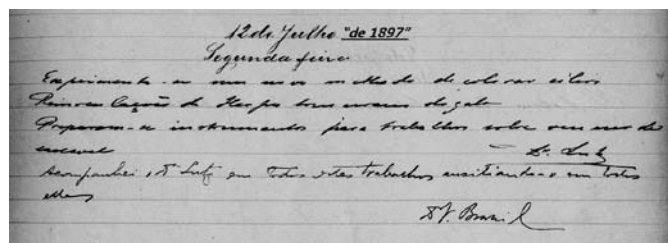 12 de Julho "de 1897"
Segunda feira
Experimenta-se um novo methodo de colorar cilios
de Herpes tonsurans do gato
Preparam-se instrumentos para trabalhos sobre
Dr. Lutz
Acompanhei o Dr. Lutz em todos estes trabalhos auxiliando-o em todos
elles
Dr V. Brazil